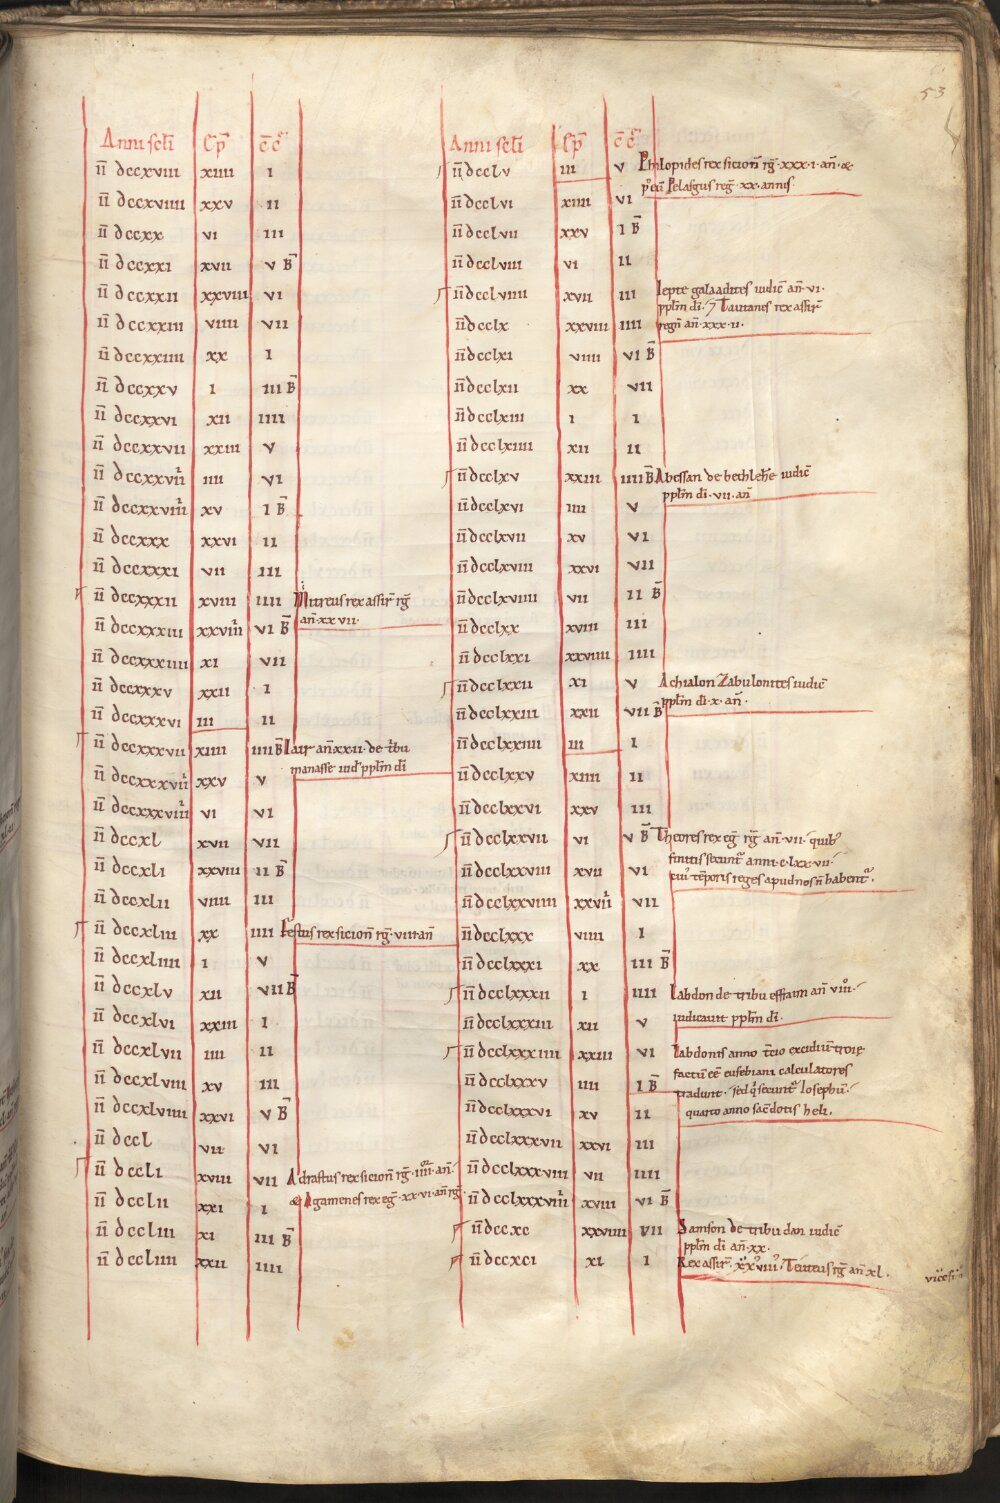 53
Anni scl̄i Ep̄ c̄ c̄
īī dccxviii xiiii i
īī dccxviiii xxv ii
īī dccxx vi iii
īī dccxxi xvii v B̄
īī dccxxii xxviii vi
īī dccxxiii viiii vii
īī dccxxiiii xx i
īī dccxxv i iii B̄
īī dccxxvi xii iiii
īī dccxxvii xxiii v
īī dccxxviii iiii vi
īī dccxxviiii xv i B̄
īī dccxxx xxvi ii
īī dccxxxi vii iii
īī dccxxxii xviii iiii Mitreus rex assir̄ rḡ
an̄ xx vii·
īī dccxxxiii xxviiii vi B̄
īī dccxxxiiii xi vii
īī dccxxxv xxii i
īī dccxxxvi iii ii
īī dccxxxvii xiiii iiii B̄ Iair an̄ xxii· de tͥbu
manasse iud̄ pplm̄ dī
īī dccxxxviii xxv v
īī dccxxxviiii vi vi
īī dccxl xvii vii
īī dccxli xxviii ii B̄
īī dccxlii viiii iii
īī dccxliii xx iiii Festus rex sicion̄ rḡ· viii an̄
īī dccxliiii i v
īī dccxlv xii vii B̄
īī dccxlvi xxiii i
īī dccxlvii iiii ii
īī dccxlviii xv iii
īī dccxlviiii xxvi v B̄
īī dccl vii vi
īī dccli xviii vii Adrastus rex sicion̄ rḡ· iiii an̄·
& Agamenes rex eḡ· xx·vi· an̄ rḡ
īī dcclii xxi i
īī dccliii xi iii B̄
īī dccliiii xxii iiii
Anni scl̄i Ep̄ c̄ c̄
īī dcclv iii v Philopides rex sicion̄ rḡ· xxx·i· an̄· &
p̄ eū Pelasgus reḡ· xx· annis·
īī dcclvi xiiii vi
īī dcclvii xxv i B̄
īī dcclviii vi ii
īī dcclviiii xvii iii Iepte galaadites iudic̄ an̄· vi·
pplm̄ dī· ⁊ Tautanes rex assir̄
regn̄ an̄· xxx·ii·
īī dcclx xxviii iiii
īī dcclxi viiii vi B̄
īī dcclxii xx vii
īī dcclxiii i i
īī dcclxiiii xii ii
īī dcclxv xxiii iiii B̄ Abessan de bechlehē iudic̄
pplm̄ dī· vii· an̄
īī dcclxvi iiii v
īī dcclxvii xv vi
īī dcclxviii xxvi vii
īī dcclxviiii vii ii B̄
īī dcclxx xviii iii
īī dcclxxi xxviiii iiii
īī dcclxxii xi v Achialon Zabulonites iudic̄
pplm̄ dī· x· an̄·
īī dcclxxiii xxii vii B̄
īī dcclxxiiii iii i
īī dcclxxv xiiii ii
īī dcclxxvi xxv iii
īī dcclxxvii vi v B̄ Theores rex eḡ· rḡ· an̄· vii· quib;
finitis secunt̄ anni· c·lxx·vii·
cui; tēporis reges apud nos n̄ habent̄·
īī dcclxxviii xvii vi
īī dcclxxviiii xxviii vii
īī dcclxxx viiii i
īī dcclxxxi xx iii B̄
īī dcclxxxii i iiii Labdon de tribu effraim an̄ viii·
iudicauit pplm̄ dī·
īī dcclxxxiii xii v
īī dcclxxxiiii xxiii vi Labdonis anno t̄cio excidiū troię
factū eē eusebiani calculatores
tradunt· sed q̄ secunt̄ Iosephū·
quarto anno sac̄dotis heli·
īī dcclxxxv iiii i B̄
īī dcclxxxvi xv ii
īī dcclxxxvii xxvi iii
īī dcclxxxviii vii iiii
īī dcclxxxviiii xviii vi B̄
īī dccxc xxviiii vii Samson de tribu dan iudic̄
pplm̄ dī an̄· xx·
īī dccxci xi i Rex assir̄· Teuteus rḡ· an̄ xl·